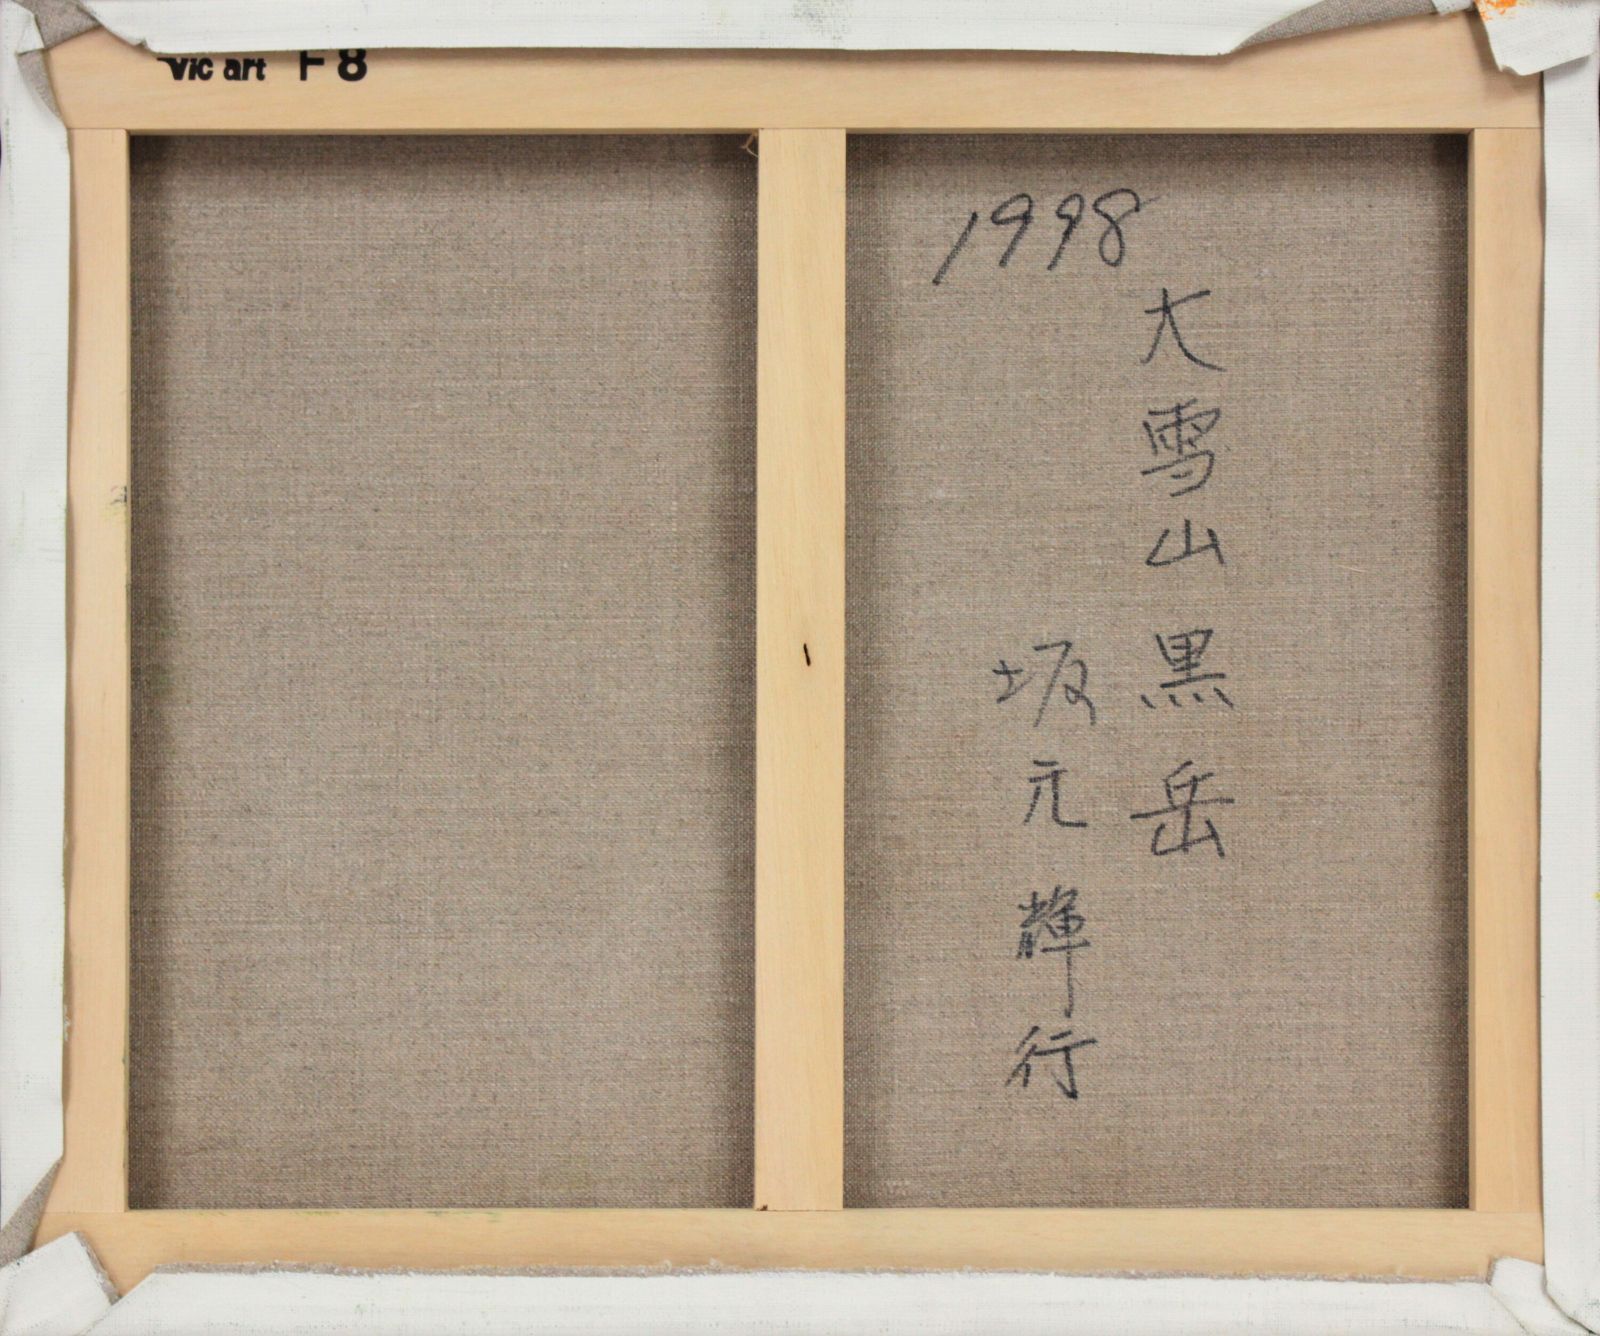 Vic art F8
1998
大雪山黒岳
坂元輝行